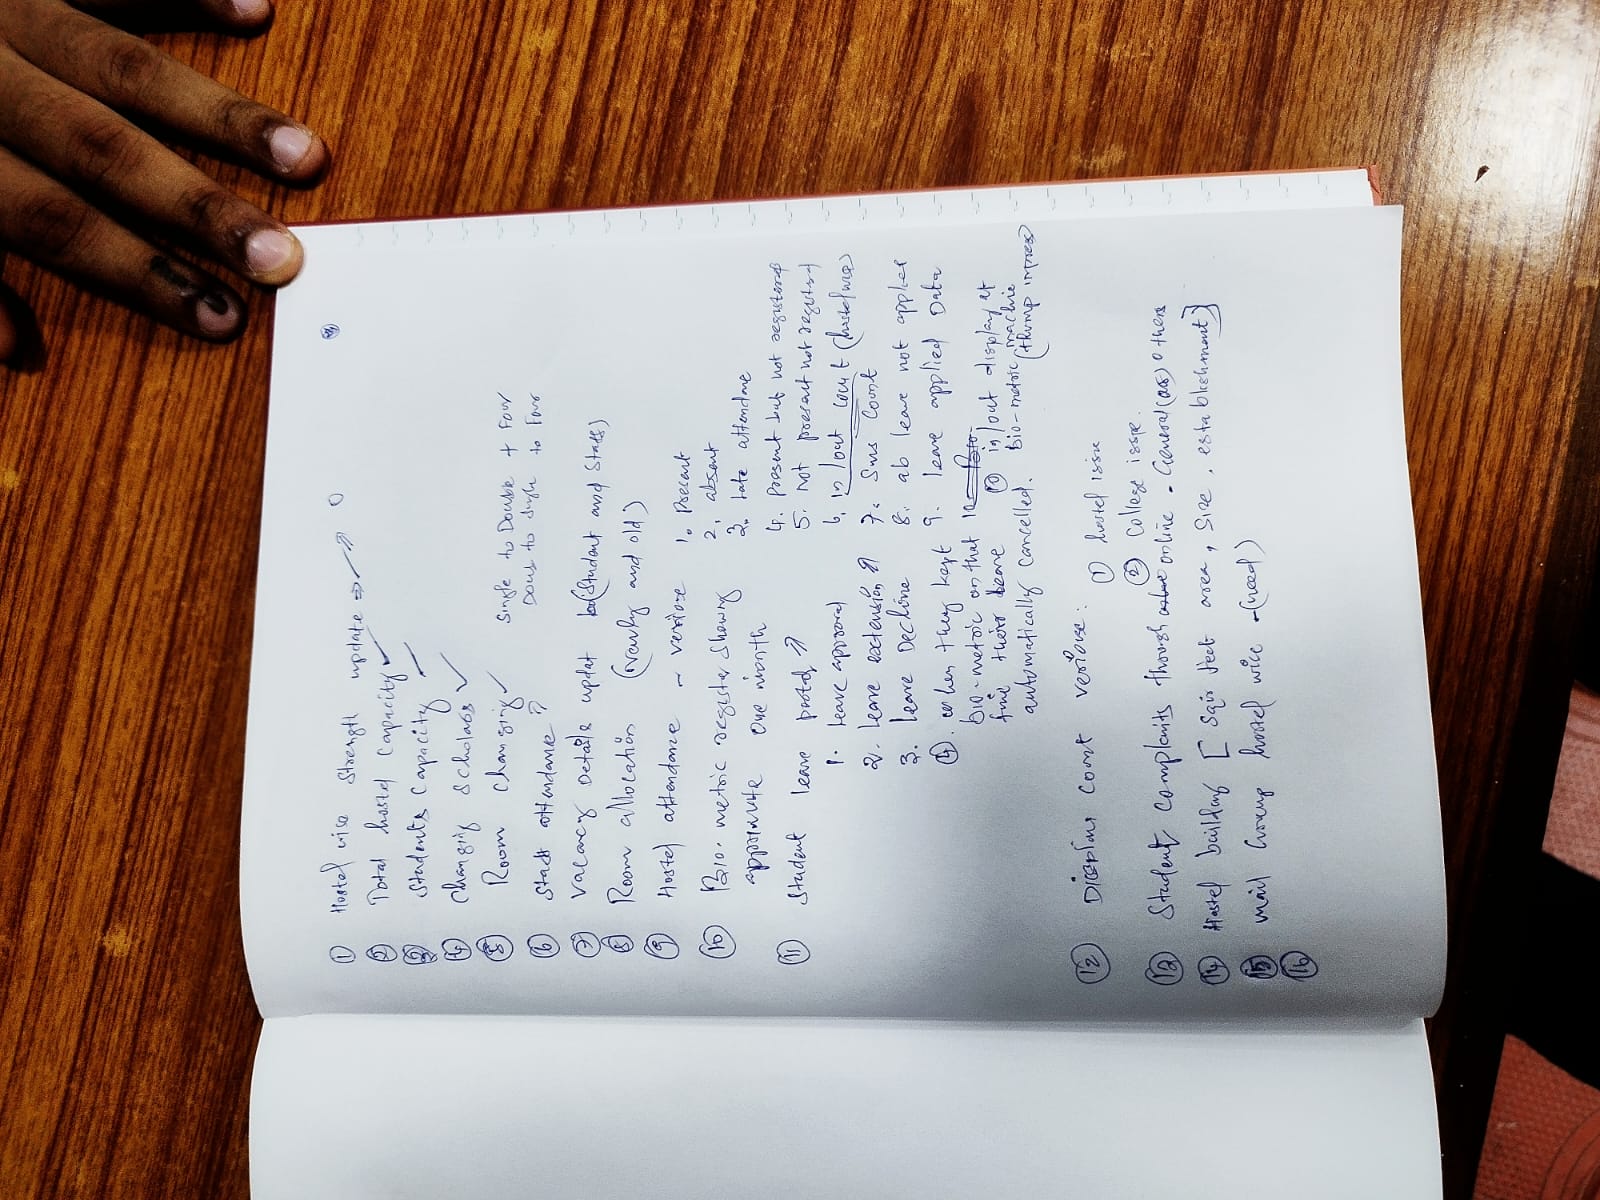 ① Hostel wise strength update ⇒ ✓ ⇒ 0
② Total hostel capacity ✓
③ Students capacity ✓
④ Changing scholars ✓
⑤ Room changing ✓ Single to Double + Four
Doub to single to Four
⑥ Staff attendance ?
⑦ Vacancy Details updat (Student and Staff)
⑧ Room allocation (newly and old)
⑨ Hostel attendance - veriose
1. Present
2. absent
3. Late attendane
4. present but not registered
5. Not present not registerd
6. in/out count (hostel wise)
7. Sms Count
8. ab leave not applied
9. leave applied Data
⑩ in/out display at
bio-metric machie
(thump impress)
⑩ Bio-metric register showing
approximate one month
⑪ Student leave portal
1. leave approval
2. leave extension
3. leave Decline
④. when they kept
bio-metric on that
time their leave
automatically cancelled.
⑫ Discipline count veriose:
① hostel issue
② college issue.
⑬ Student complaints through online. General (or) others
⑭ Hostel building [ Sqir feet area, Size, establishment ]
⑮ mail Group hostel wise -(need)
⑯